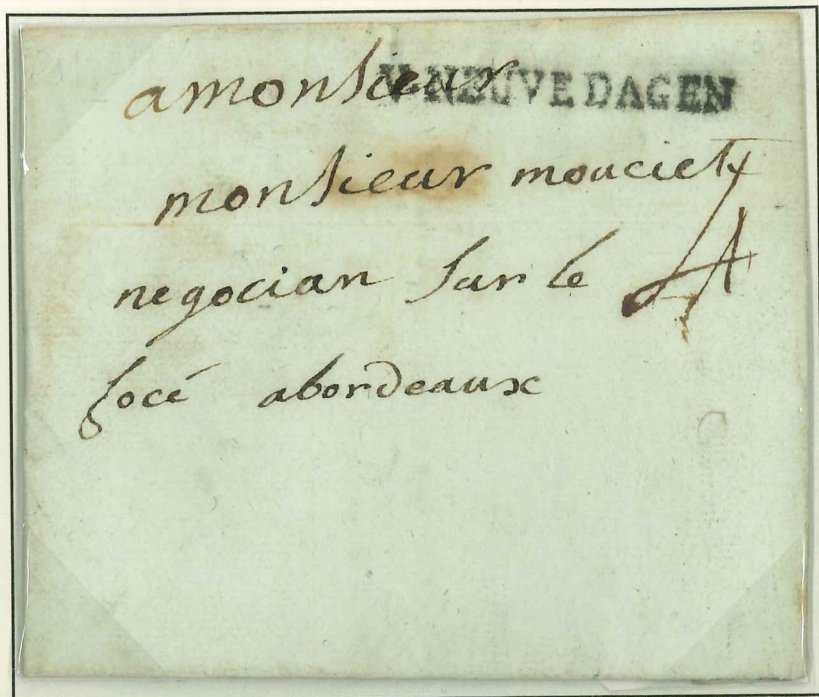 amonsieur V.NEUVE DAGEN
monsieur mouciet
negocian sur le 4
focé abordeaux